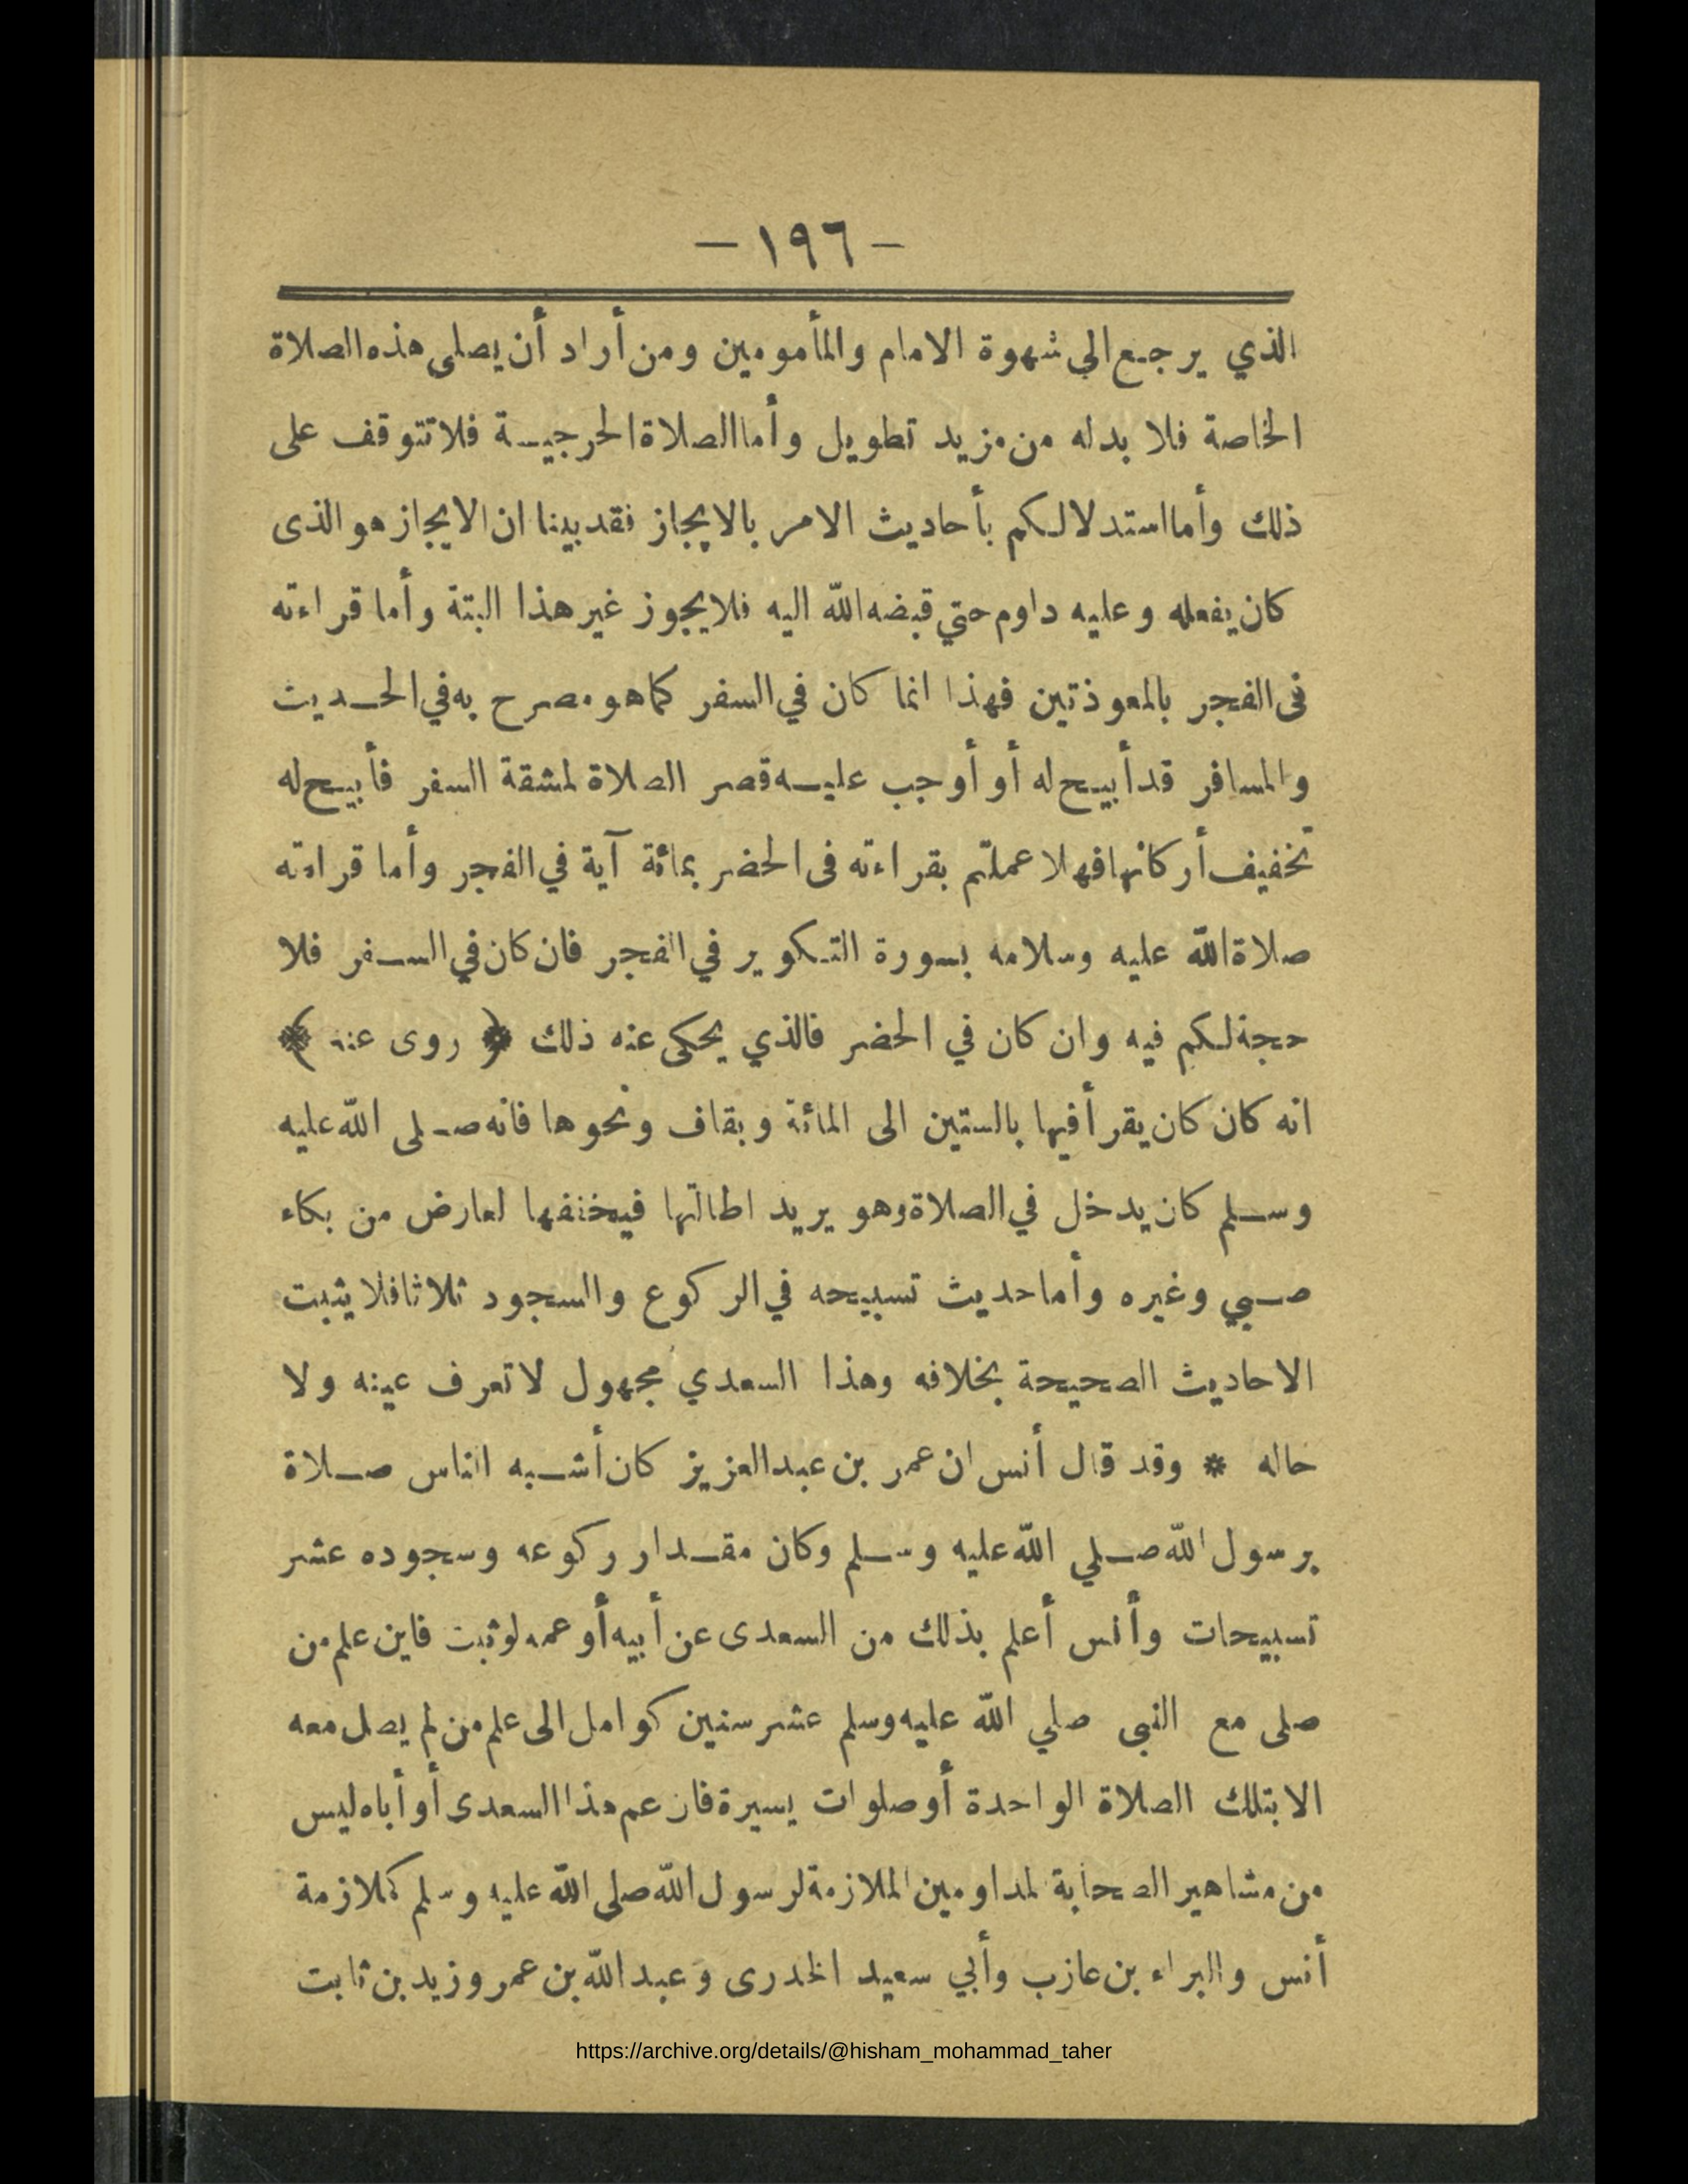 — ١٩٦ —
الذي يرجع الي شهوة الامام والمأمومين ومن أراد أن يصلى هذه الصلاة
الخاصة فلا بد له من مزيد تطويل وأما الصلاة الحرجية فلا تتوقف على
ذلك وأما استدلالكم بأحاديث الامر بالايجاز فقد بينا ان الايجاز هو الذى
كان يفعله وعليه داوم حتي قبضه الله اليه فلا يجوز غير هذا البتة وأما قراءته
فى الفجر بالمعوذتين فهذا انما كان في السفر كما هو مصرح به في الحديث
والمسافر قد أبيح له أو أوجب عليه قصر الصلاة لمشقة السفر فأبيح له
تخفيف أركانها فهلا عملتم بقراءته فى الحضر بمائة آية في الفجر وأما قراءته
صلاة الله عليه وسلامه بسورة التكوير في الفجر فان كان في السفر فلا
حجة لكم فيه وان كان في الحضر فالذي يحكى عنه ذلك ﴿ روى عنه ﴾
انه كان كان يقرأ فيها بالستين الى المائة وبقاف ونحوها فانه صلى الله عليه
وسلم كان يدخل في الصلاة وهو يريد اطالتها فيخففها لعارض من بكاء
صبي وغيره وأما حديث تسبيحه في الركوع والسجود ثلاثا فلا يثبت
الاحاديث الصحيحة بخلافه وهذا السعدي مجهول لا تعرف عينه ولا
حاله * وقد قال أنس ان عمر بن عبد العزيز كان أشبه الناس صلاة
برسول الله صلي الله عليه وسلم وكان مقدار ركوعه وسجوده عشر
تسبيحات وأنس أعلم بذلك من السعدى عن أبيه أو عمه لو ثبت فاين علم من
صلى مع النبى صلي الله عليه وسلم عشر سنين كوامل الى علم من لم يصل معه
الا بتلك الصلاة الواحدة أو صلوات يسيرة فان عم هذا السعدى أو أباه ليس
من مشاهير الصحابة لمداومين الملازمة لرسول الله صلى الله عليه وسلم كملازمة
أنس والبراء بن عازب وأبي سعيد الخدرى وعبد الله بن عمر وزيد بن ثابت
https://archive.org/details/@hisham_mohammad_taher